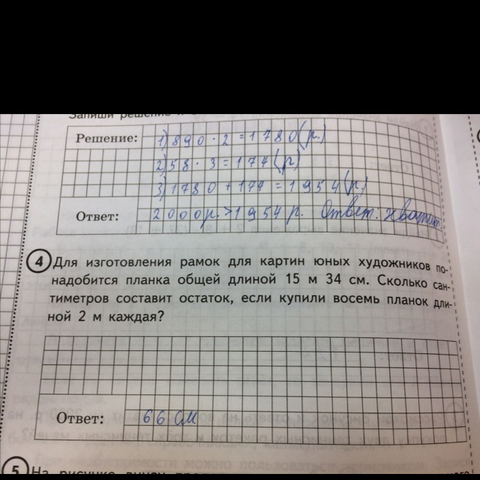 Запиши решение и
Решение: 1) 890 · 2 = 1780 (р.)
2) 58 · 3 = 174 (р.)
3) 1780 + 174 = 1954 (р.)
Ответ: 2000 р. > 1954 р. Ответ. хватит.
4 Для изготовления рамок для картин юных художников по-
надобится планка общей длиной 15 м 34 см. Сколько сан-
тиметров составит остаток, если купили восемь планок дли-
ной 2 м каждая?
Ответ: 66 см
5 На рисунке